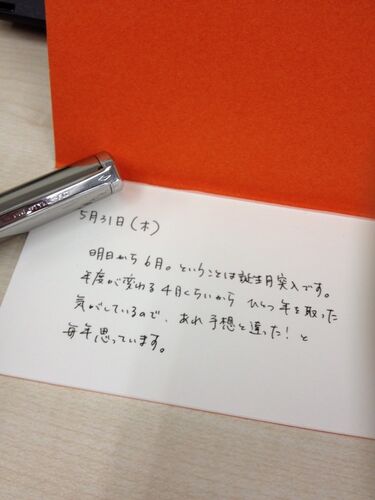 5月31日(木)
明日から6月。ということは誕生月突入です。
年度が変わる4月くらいから ひとつ年を取った
気がしているので、あれ予想と違った!と
毎年思っています。